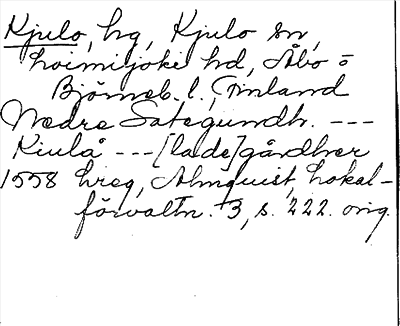 Kjulo, hg, Kjulo sn,
Loimijoki hd, Åbo o
Björneb. l., Finland
Nedre Sategundh. ---
Kiulå --- [lade]gårdher
1558 hreg, Almquist, Lokal-
förvaltn. 3, s. 222. orig.